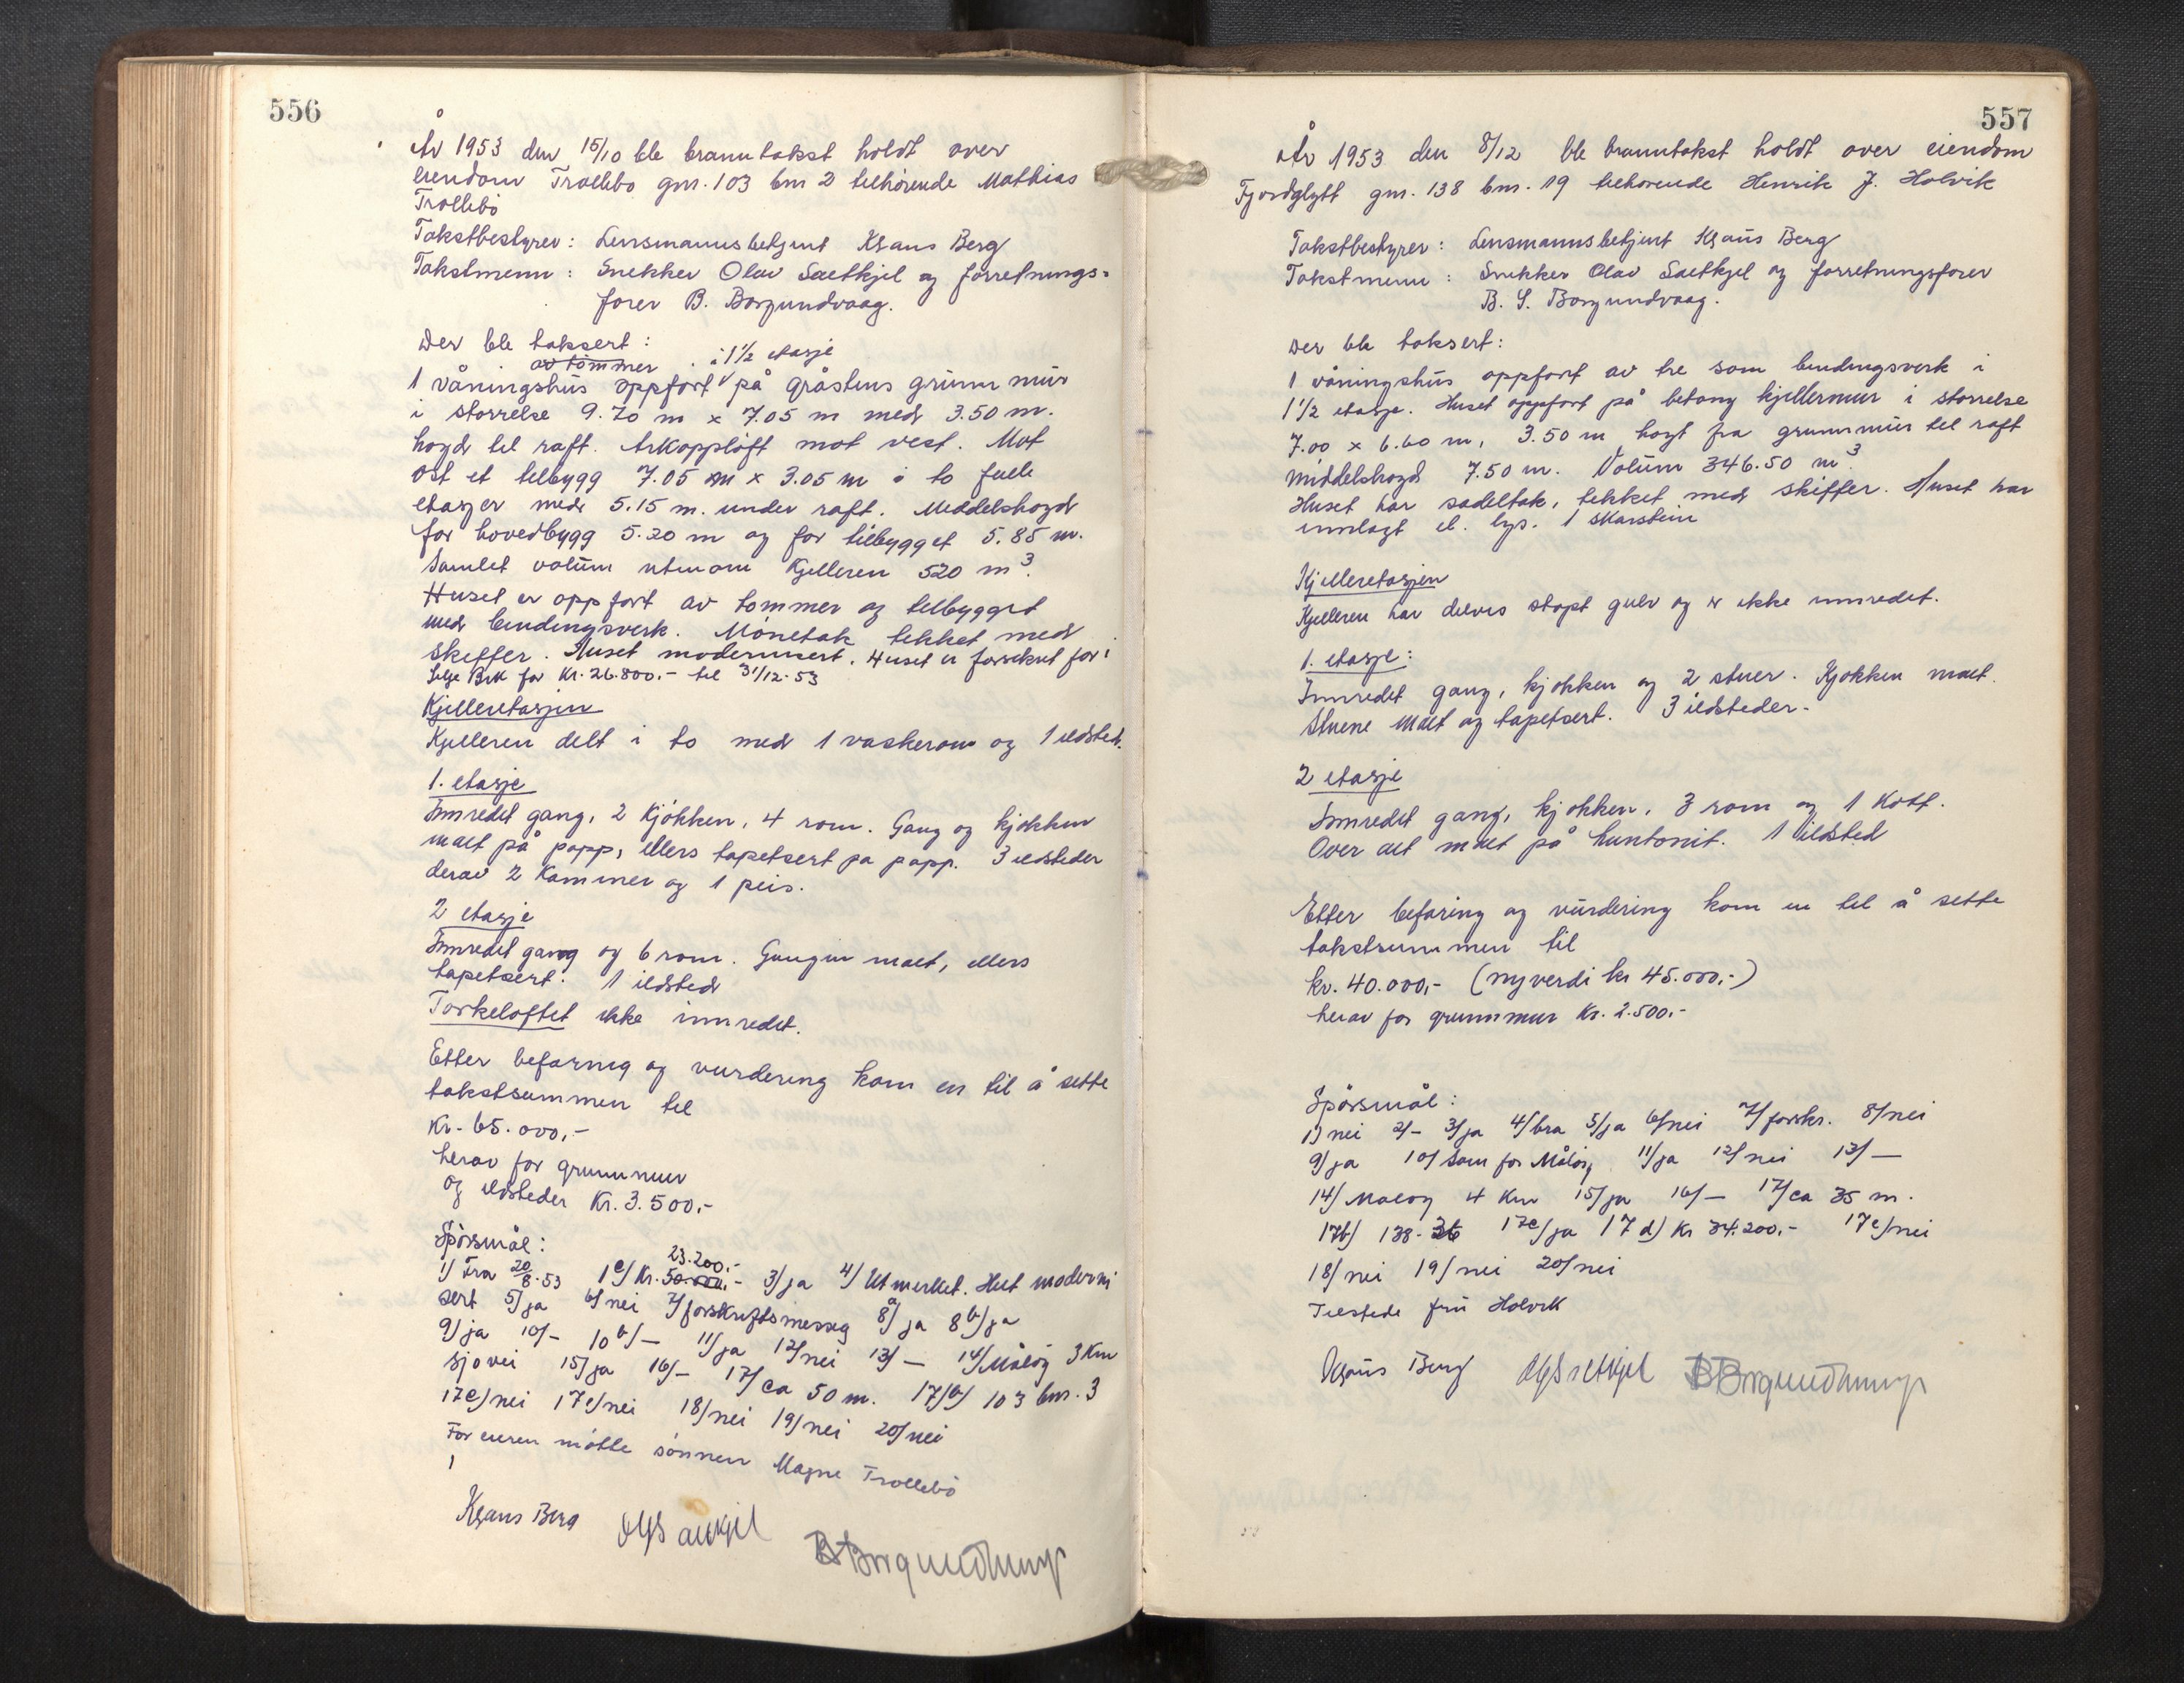 556
År 1953 den 15/10 ble branntakst holdt over
eiendom Trollebø gnr. 103 bnr 2 tilhørende Mathias
Trollebø
Takstbestyrer: Lensmannsbetjent Klaus Berg
Takstmenn: Snekker Olav Sætkjel og forretnings-
fører B. Borgundvaag.
Der ble taksert:
av tømmer i 1 1/2 etasje
1 våningshus oppført på gråstens grunnmur
i størrelse 9.70 m x 7.05 m med 3.50 m.
høgd til raft. Arkoppløft mot vest. Mot
øst et tilbygg 7.05 m x 3.05 m i to fulle
etasjer med 5.15 m. under raft. Middelshøgd
for hovedbygg 5.20 m og for tilbygget 5.85 m.
Samlet volum utenom kjelleren 520 m3.
Huset er oppført av tømmer og tilbygget
med bindingsverk. Mønetak tekket med
skiffer. Huset modernisert. Huset er forsikret for i
Selje Brk for kr. 26.800.- til 31/12-53
Kjelleretasjen
Kjelleren delt i to med 1 vaskerom og 1 ildsted.
1. etasje
Innredet gang, 2 kjøkken, 4 rom. Gang og kjøkken
malt på papp, ellers tapetsert på papp. 3 ildsteder
derav 2 kaminer og 1 peis.
2 etasje
Innredet gang og 6 rom. Gangen malt, ellers
tapetsert. 1 ildsted
Tørkeloftet ikke innredet.
Etter befaring og vurdering kom en til å sette
takstsummen til
Kr. 65.000,-
herav for grunnmur
og ildsteder Kr. 3.500,-
Spørsmål:
23.200.-
1) Fra 20/8-53 1c/ Kr. 50.000,- 3/ja 4/ Utmerket. Helt moderni
sert 5/ja 6/nei 7/forskriftsmessig 8a/ja 8b/ja
9/ja 10/- 10b/- 11/ja 12/nei 13/- 14/Måløy 3 Km
sjøvei 15/ja 16/- 17/ca 50 m. 17/b/ 103 bnr. 3
17c/nei 17e/nei 18/nei 19/nei 20/nei
For eieren møtte sønnen Magne Trollebø
Klaus Berg OlSætkjel BBorgundvaag
557
År 1953 den 8/12 ble branntakst holdt over eiendom
Fjordglytt gnr. 138 bnr. 19 tilhørende Henrik J. Holvik
Takstbestyrer: Lensmannsbetjent Klaus Berg
Takstmenn: Snekker Olav Sætkjel og forretningsfører
B. S. Borgundvaag.
Der ble taksert:
1 våningshus oppført av tre som bindingsverk i
1 1/2 etasje. Huset oppført på betong kjellermur i størrelse
7.00 x 6.60 m, 3.50 m høgt fra grunnmur til raft
middelshøgd 7.50 m. Volum 346.50 m3.
Huset har sadeltak, tekket med skiffer. Huset har
innlagt el. lys. 1 skorstein
Kjelleretasjen
Kjelleren har delvis støpt gulv og er ikke innredet.
1. etasje:
Innredet gang, kjøkken og 2 stuer. Kjøkken malt.
Stuene malt og tapetsert. 3 ildsteder.
2 etasje
Innredet gang, kjøkken, 3 rom og 1 kott.
Over alt malt på huntonit. 1 ildsted
Etter befaring og vurdering kom en til å sette
takstsummen til
kr. 40.000,- (nyverdi kr 45.000,-)
herav for grunnmur Kr. 2.500.-
Spørsmål:
1) nei 2/- 3/ja 4/bra 5/ja 6/nei 7/forskr. 8/nei
9/ja 10/ Som for Måløy 11/ja 12/nei 13/-
14/ Måløy 4 Km 15/ja 16/- 17/ca 35 m.
17b) 138-36 17c/ja 17 d) Kr 34.200.- 17e/nei
18/nei 19/nei 20/nei
Tilstede fru Holvik
Klaus Berg OlSætkjel BBorgundvaag